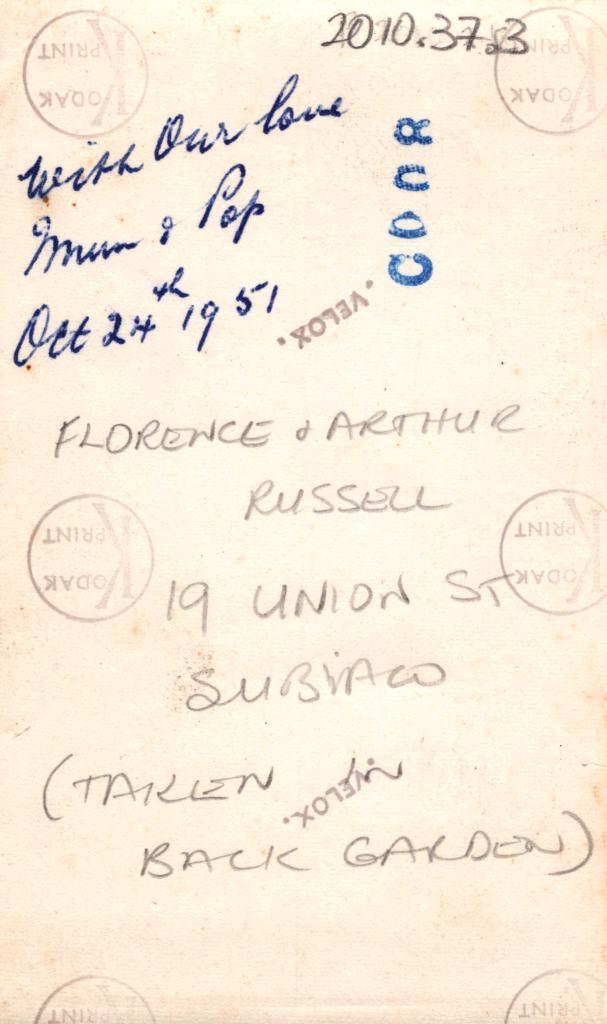 2010.37.3
KODAK
PRINT
KODAK
PRINT
With Our love
Mum & Pop
Oct 24th 1951
VELOX.
FLORENCE & ARTHUR
RUSSELL
KODAK
PRINT
KODAK
PRINT
19 UNION ST
SUBIACO
(TAKEN IN
VELOX.
BACK GARDEN)
PRINT
PRINT